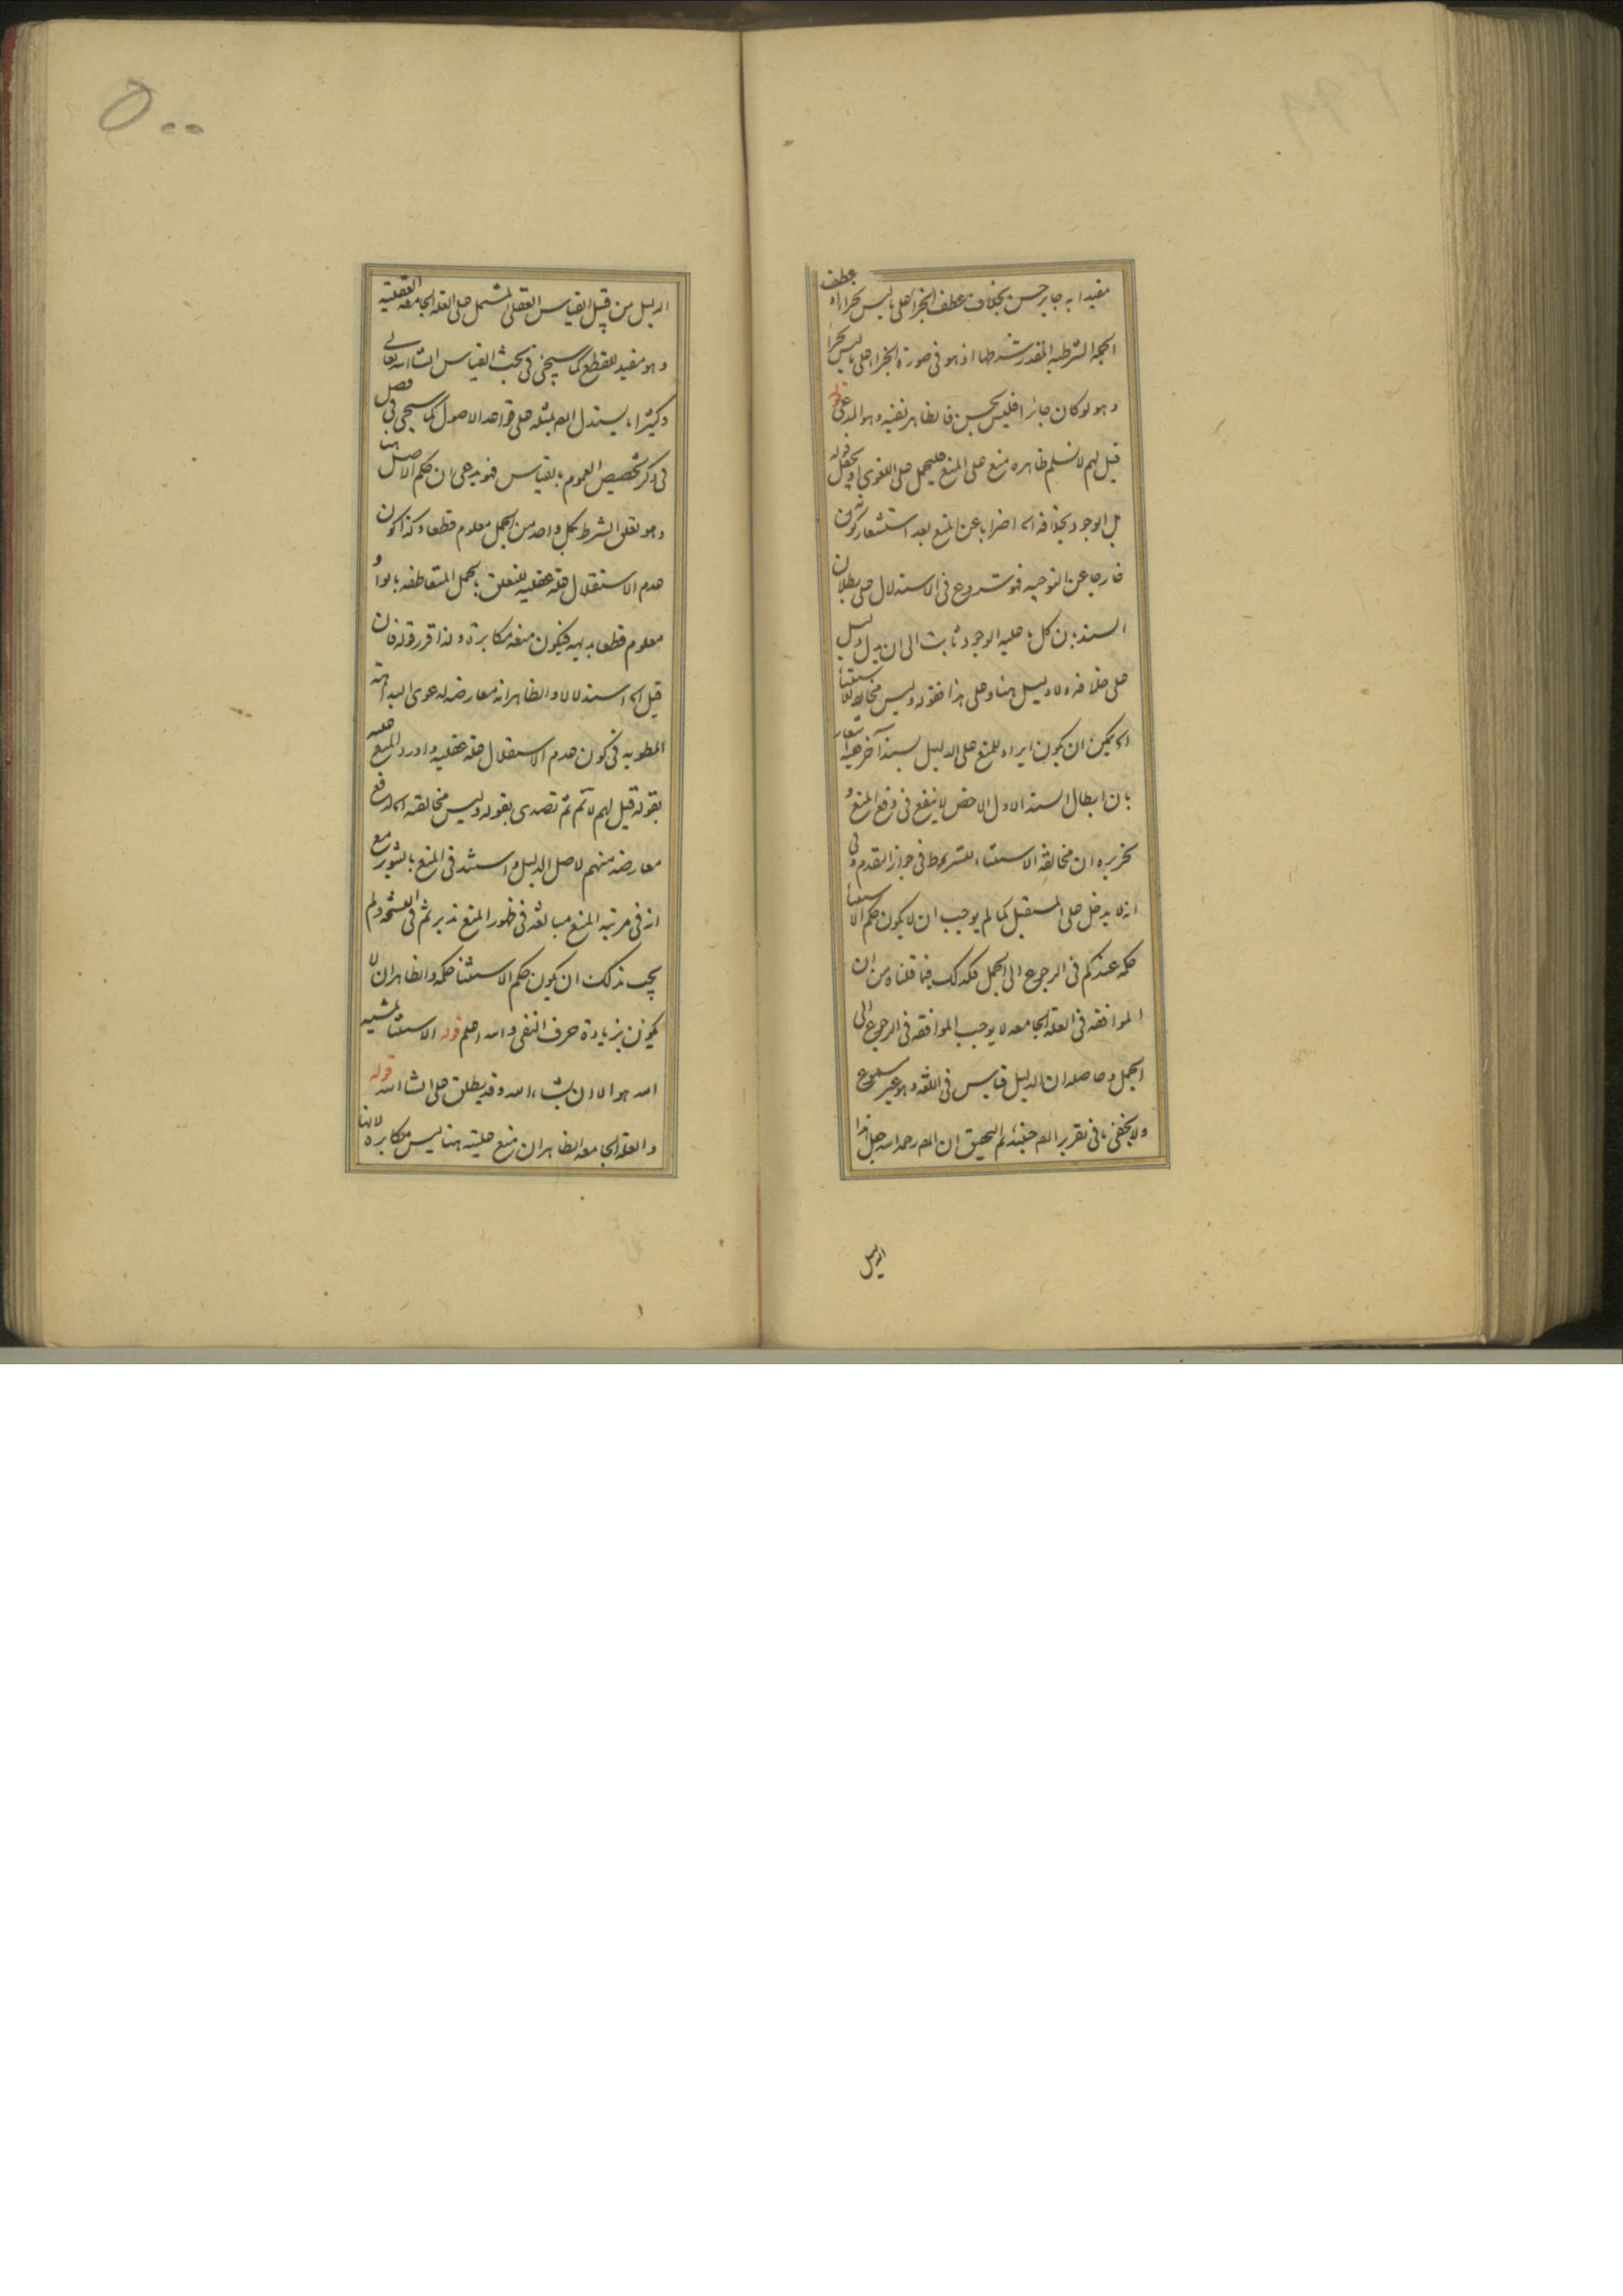 مفيدا به جايز حسن بخلاف عطف الجزأ على ما ليس بجزا اه عطف
الجملة الشرطية المقدر شرطها اذ هو فى صورة الجزاء على ما ليس بجزا
و هو لو كان جائزا فليس بحسن فالظاهر نفيه و هو المدعى قوله
قيل لهم لا نسلم ظاهره منع على المنع فليحمل على اللغوى او يجعل قوله
بل الوجود بخلافه اه اضرابا عن المنع بعد استشعار كونه
خارجا عن التوجيه فهو شروع فى الاستدلال على بطلان
السند بان كل ما عليه الوجود ثابت الى ان يدل دليل
على خلافه و لا دليل هنا و على هذا فقوله و ليس مخالفة الاستثنا
اه يمكن ان يكون ايراد للمنع على الدليل بسند آخر فيه اشعار
بان ابطال السند الاول الاخص لا ينفع فى دفع المنع و
تحريره ان مخالفة الاستثناء للشروط فى جواز التقدم و فى
انه لا يدخل على المستقبل كما لم يوجب ان لا يكون حكم الاستثنا
حكمه عندكم فى الرجوع الى الجمل فكذلك فيما قلناه من ان
الموافقة فى العلة الجامعه لا يوجب الموافقه فى الرجوع الى
الجمل و حاصله ان الدليل قياس فى اللغه و هو غير مسموع
و لا يخفى ما فى تقرير المص حينئذ ثم التحقيق ان المص رحمه الله جعل هذا
الدليل
٥٠٠
الدليل من قبيل القياس العقلى المشتمل على العلة الجامعه العقلية
و هو مفيد للقطع كما سيجئ فى بحث القياس انشا الله تعالى
و كثيرا ما يستدل المص بمثله على قواعد الاصول كما سيجى فى فصل
فى ذكر تخصيص العموم بالقياس فهو يدعى ان حكم الاصل هنا
و هو تعلق الشرط بكل واحد من الجمل معلوم قطعا و كذا كون
عدم الاستقلال علة عقليه للتعلق بالجمل المتعاطفه بالواو
معلوم قطعا بديهيه فيكون منعه مكابرة و لذا قرر قوله فان
قيل اه استدلالا و الظاهر انه معارضه لدعوى البداهة
المطويه فى كون عدم الاستقلال علة عقليه و اورد المنع عليه
بقوله قيل لهم لا نم ثم تصدى بقوله و ليس مخالفته اه لدفع
معارضه منهم لاصل الدليل و استند فى المنع بالشهور مع
انه فى مرتبة المنع مبالغه فى ظهور المنع تدبر ثم فى النسخه و لم
يجب بذلك ان يكون حكم الاستثنا حكمه و الظاهر ان لا
يكون بزيادة حرف النفى و الله اعلم قوله الاستثنا بمشيه
الله هو الا ان يشاء الله و قد يطلق على انشا الله قوله
و العلة الجامعه الظاهر ان منع عليته هنا ليس مكابره لانها